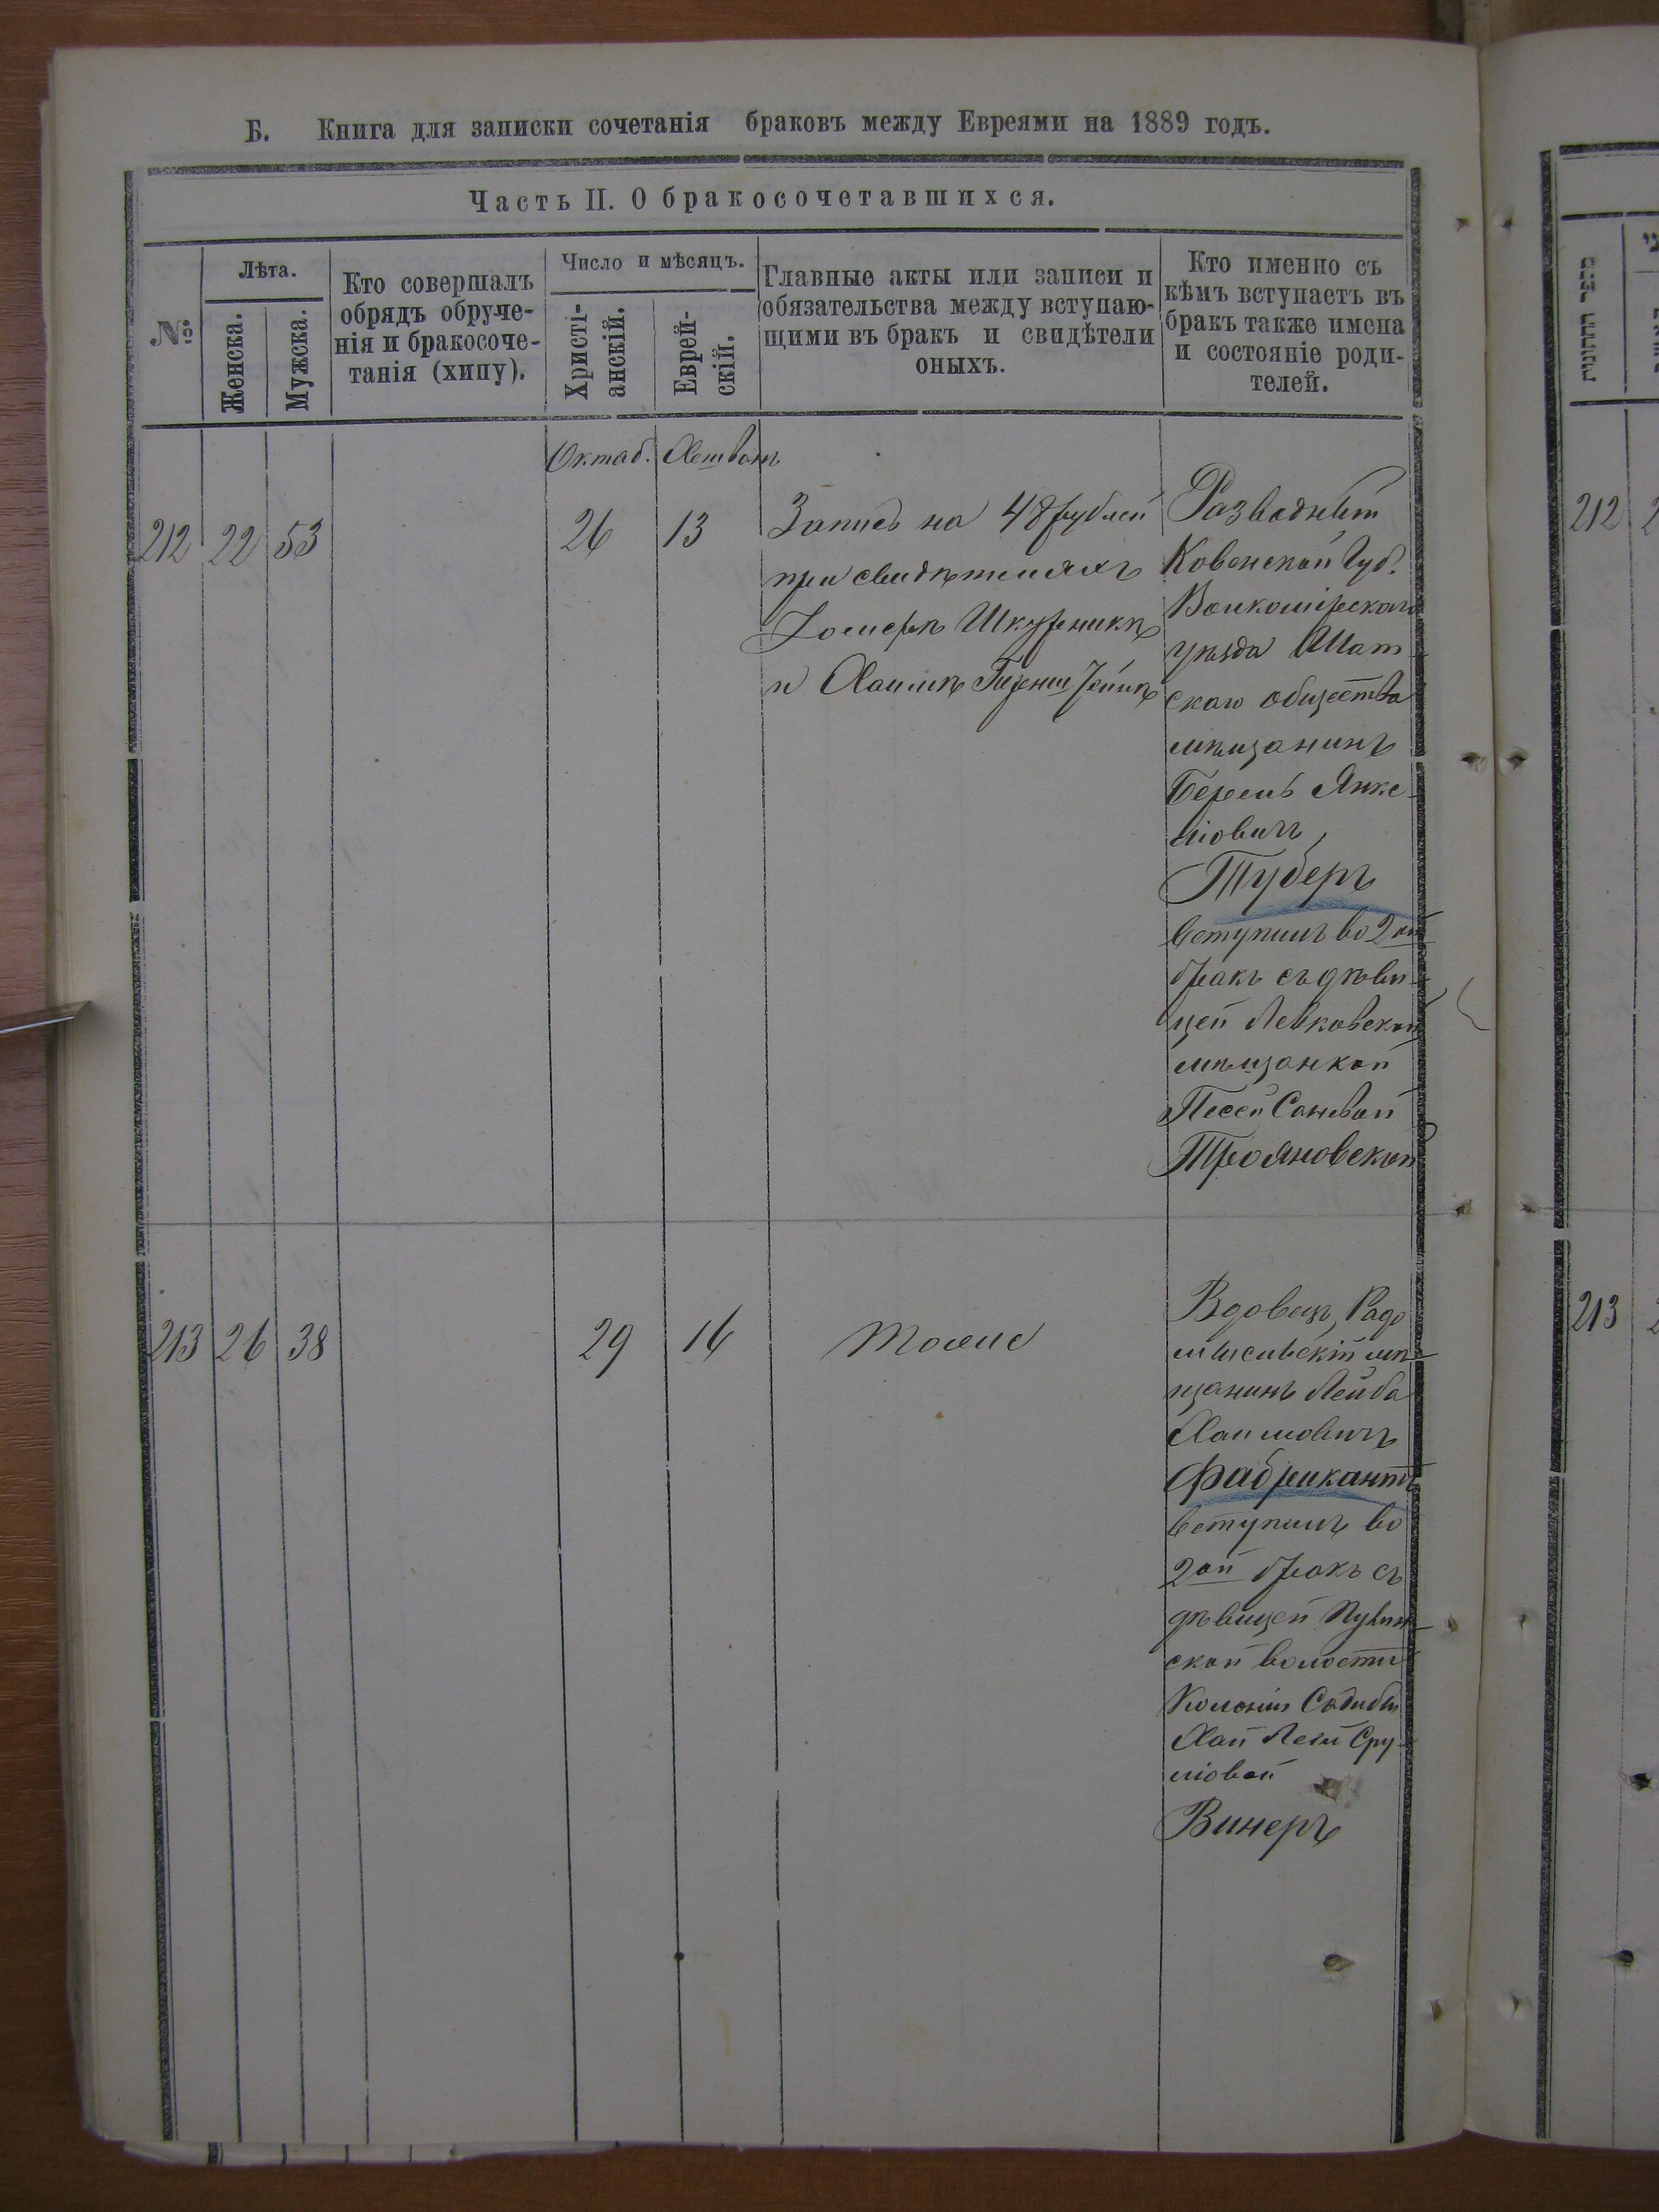 Б. Книга для записки сочетанія браковъ между Евреями на 1889 годъ.
Часть II. О бракосочетавшихся.
№
Лѣта.
Женска.
Мужска.
Кто совершалъ
обрядъ обруче-
нія и бракосоче-
танія (хипу).
Число и мѣсяцъ.
Христі-
анскій.
Еврей-
скій.
Главные акты или записи и
обязательства между вступаю-
щими въ бракъ и свидѣтели
оныхъ.
Кто именно съ
кѣмъ вступаетъ въ
бракъ также имена
и состояніе роди-
телей.
Октяб. Хешванъ
212 22 53
26 13
Запись на 48 рублей
при свидѣтеляхъ
Іосифѣ Шкурникѣ
и Хаимѣ
Разводный
Ковенской Губ.
Вилкомірскаго
уѣзда Шат-
скаго общества
мѣщанинъ
Берель Янке-
ліовичъ,
Туберъ
вступилъ во 2ой
бракъ съ дѣви-
цей Левковской
мѣщанкой
Песей
Трояновской
213 26 38
29 16
тоже
Вдовецъ, Радо-
мысльскій мѣ-
щанинъ Лейба
Хаимовичъ
Фабрикантъ
вступилъ во
2ой бракъ съ
дѣвицей
ской волости
Колоніи
Хай Леей Сру-
ліовой
Винеръ
מספר החתונות
212
213